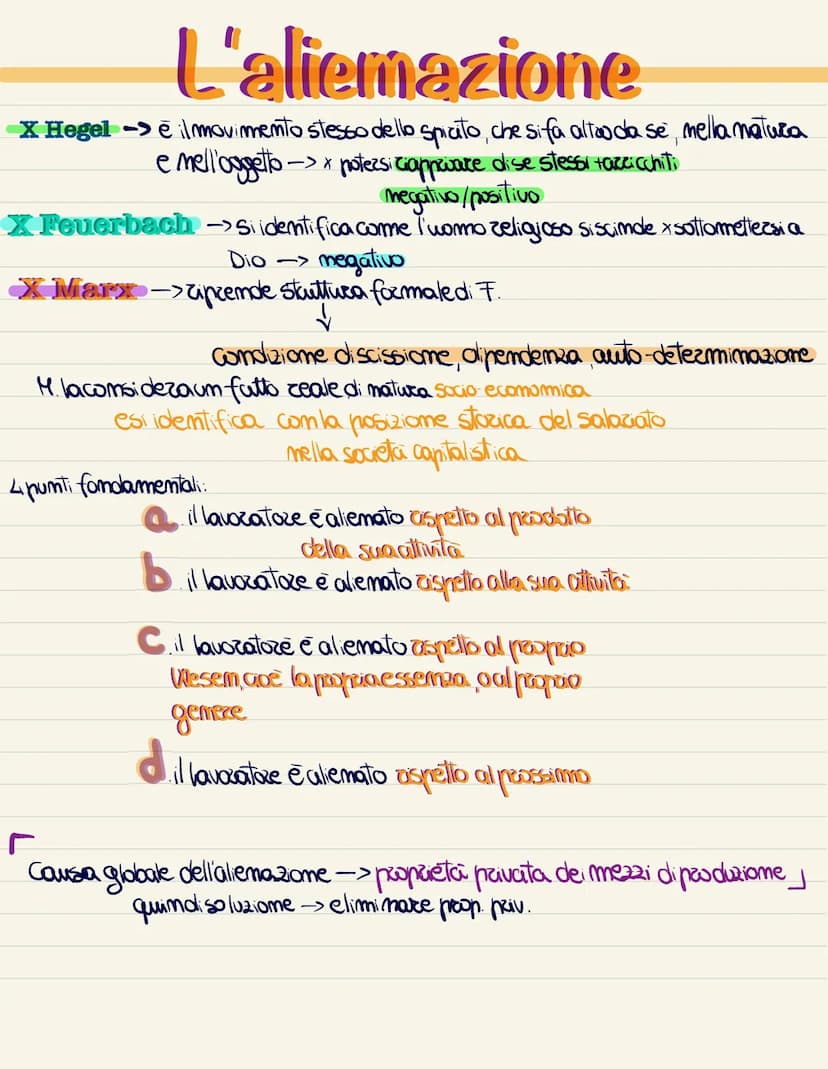 L'alienazione
X Hegel -> è il movimento stesso dello spirito, che si fa altro da sé, nella natura
e nell'oggetto -> x potersi riappropriare di se stessi + arricchiti
negativo/positivo
X Feuerbach -> Si identifica come l'uomo religioso si scinde x sottomettersi a
Dio -> negativo
X Marx -> riprende struttura formale di F.
↓
Condizione di scissione, dipendenza, auto-determinazione
M. la considera un fatto reale di natura socio-economica
e si identifica con la posizione storica del salariato
nella società capitalistica
4 punti fondamentali:
a. il lavoratore è alienato rispetto al prodotto
della sua attività
b. il lavoratore è alienato rispetto alla sua attività
c. il lavoratore è alienato rispetto al proprio
Wesen, cioè la propria essenza, o al proprio
genere
d. il lavoratore è alienato rispetto al prossimo
Causa globale dell'alienazione -> proprietà privata dei mezzi di produzione
quindi soluzione -> eliminare prop. priv.